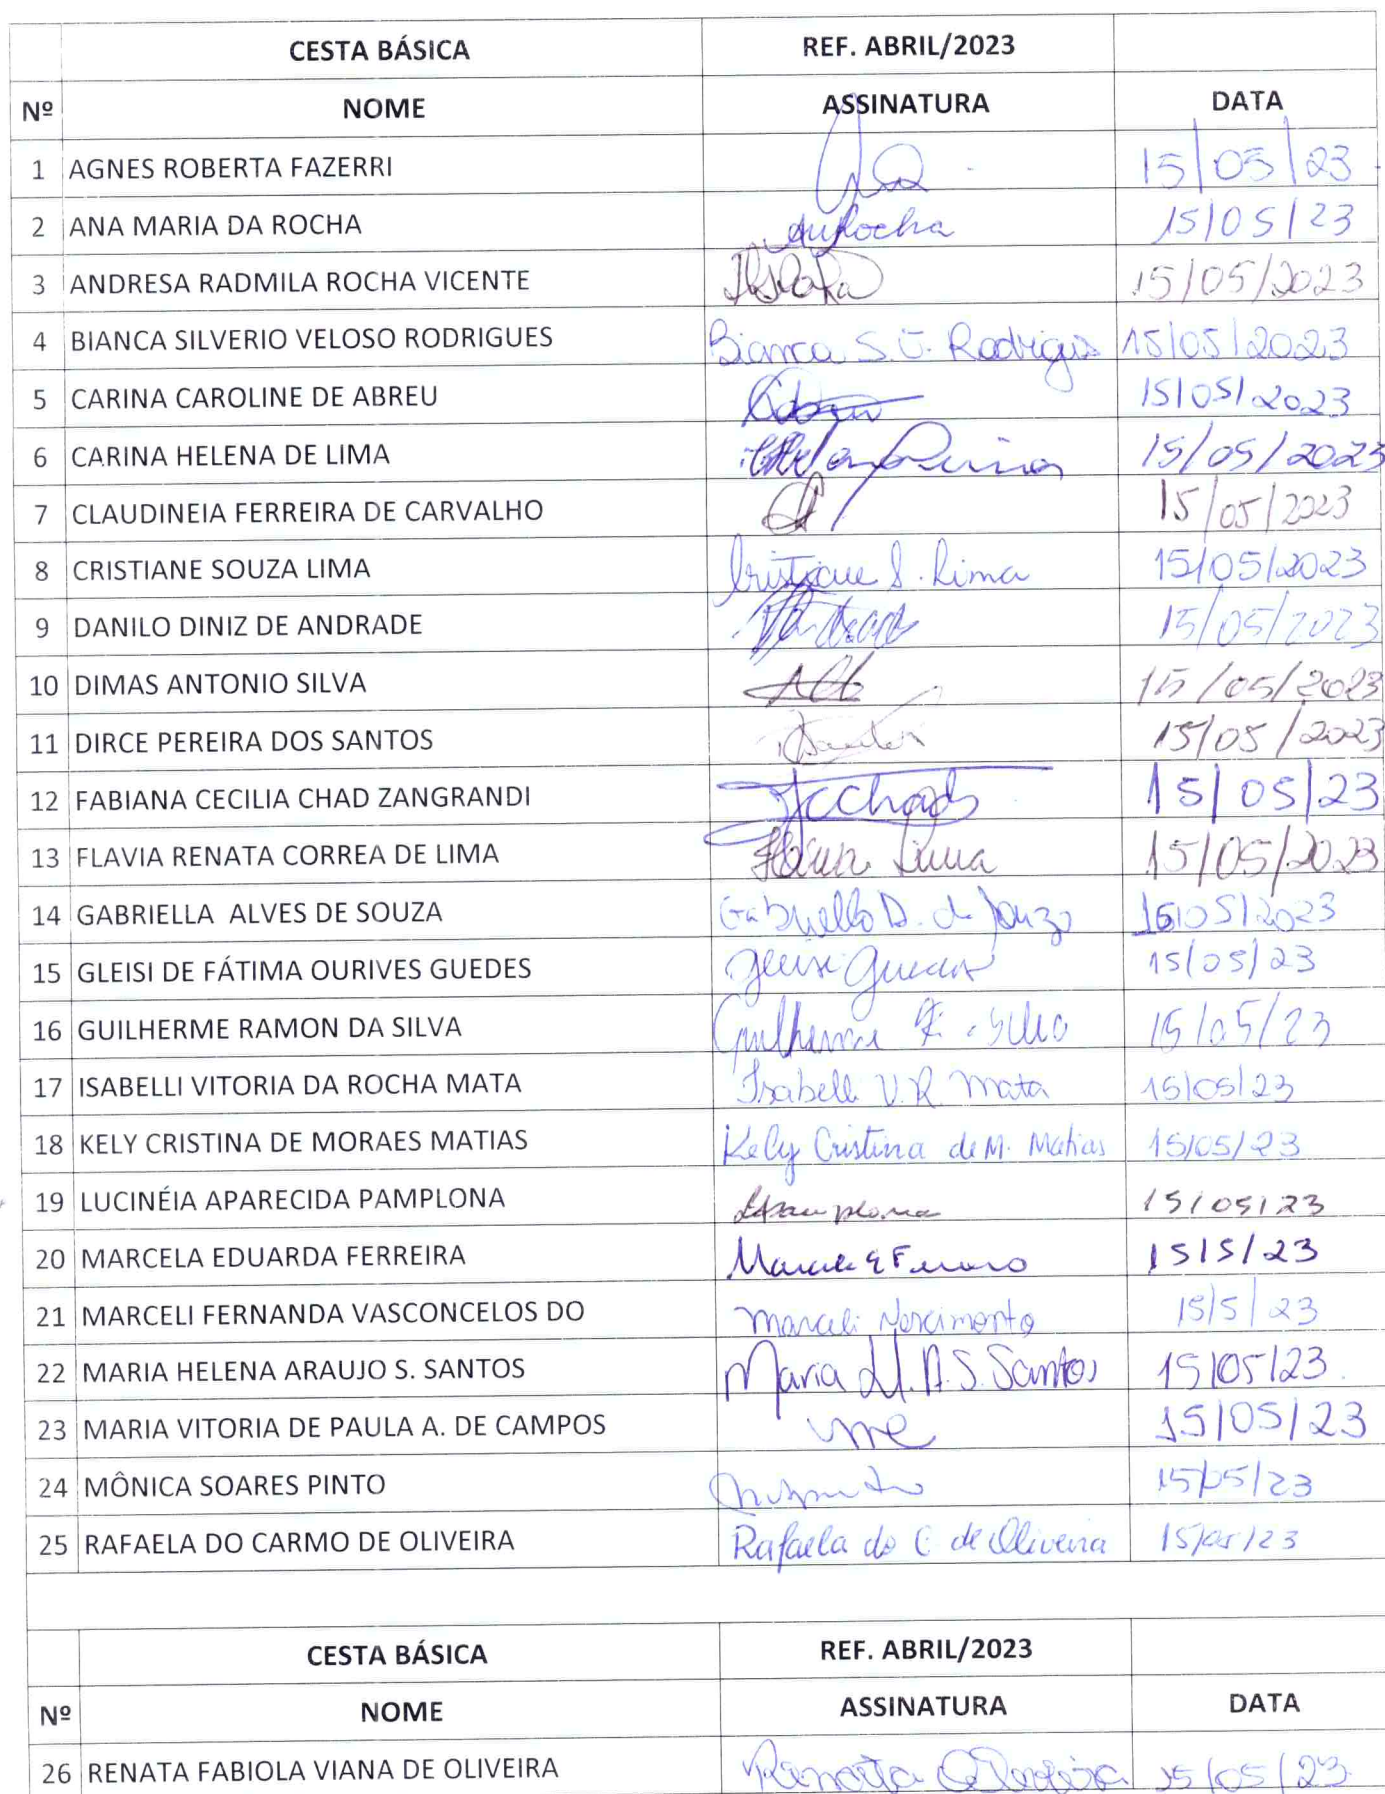 CESTA BÁSICA REF. ABRIL/2023
Nº NOME ASSINATURA DATA
1 AGNES ROBERTA FAZERRI 15/05/23
2 ANA MARIA DA ROCHA AMRocha 15/05/23
3 ANDRESA RADMILA ROCHA VICENTE 15/05/2023
4 BIANCA SILVERIO VELOSO RODRIGUES Bianca S.V. Rodrigues 15/05/2023
5 CARINA CAROLINE DE ABREU 15/05/2023
6 CARINA HELENA DE LIMA 15/05/2023
7 CLAUDINEIA FERREIRA DE CARVALHO 15/05/2023
8 CRISTIANE SOUZA LIMA Cristiane S. Lima 15/05/2023
9 DANILO DINIZ DE ANDRADE 15/05/2023
10 DIMAS ANTONIO SILVA 15/05/2023
11 DIRCE PEREIRA DOS SANTOS 15/05/2023
12 FABIANA CECILIA CHAD ZANGRANDI 15/05/23
13 FLAVIA RENATA CORREA DE LIMA Flavia Lima 15/05/2023
14 GABRIELLA ALVES DE SOUZA Gabriella A. de Souza 15/05/2023
15 GLEISI DE FÁTIMA OURIVES GUEDES Gleisi Guedes 15/05/23
16 GUILHERME RAMON DA SILVA Guilherme R. Silva 15/05/23
17 ISABELLI VITORIA DA ROCHA MATA Isabelli V.R. Mata 15/05/23
18 KELY CRISTINA DE MORAES MATIAS Kely Cristina de M. Matias 15/05/23
19 LUCINÉIA APARECIDA PAMPLONA LAPamplona 15/05/23
20 MARCELA EDUARDA FERREIRA Marcela E 15/5/23
21 MARCELI FERNANDA VASCONCELOS DO Marceli Nascimento 15/5/23
22 MARIA HELENA ARAUJO S. SANTOS Maria H. A. S. Santos 15/05/23
23 MARIA VITORIA DE PAULA A. DE CAMPOS 15/05/23
24 MÔNICA SOARES PINTO 15/05/23
25 RAFAELA DO CARMO DE OLIVEIRA Rafaela do C de Oliveira 15/05/23
CESTA BÁSICA REF. ABRIL/2023
Nº NOME ASSINATURA DATA
26 RENATA FABIOLA VIANA DE OLIVEIRA Renata Oliveira 15/05/23